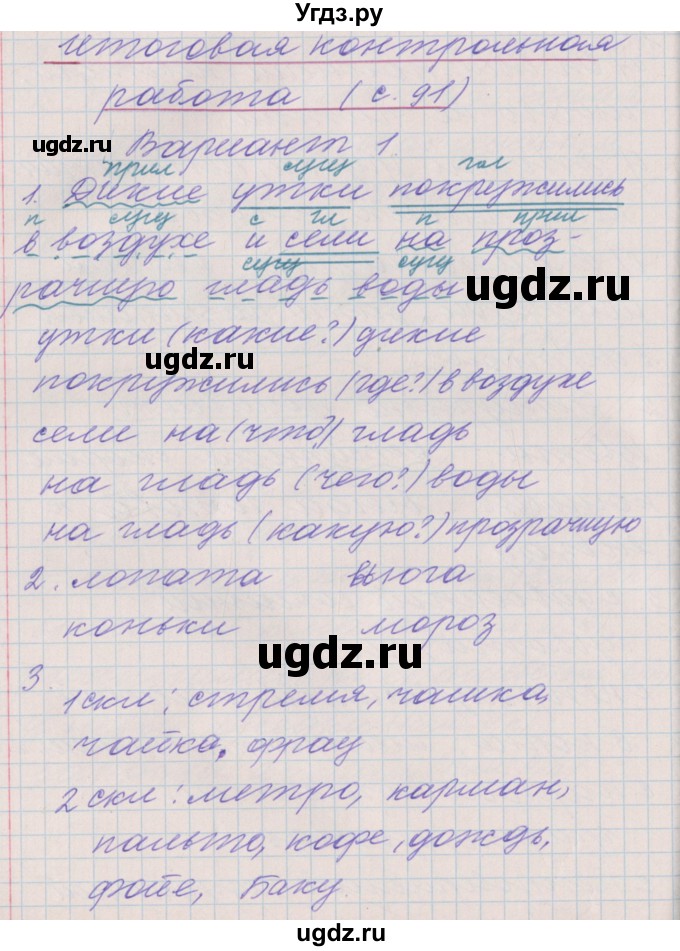 Угдз.ру
Итоговая контрольная
работа (с. 91)
ugdz.ru
Вариант 1.
прил сущ гл
1. Дикие утки покружились
п сущ с гл п прил
в воздухе и сели на проз-
сущ сущ
рачную гладь воды
ugdz.ru
утки (какие?) дикие
ugdz.ru
покружились (где?) в воздухе
сели на (что?) гладь
на гладь (чего?) воды
на гладь (какую?) прозрачную
2. лопата вьюга
коньки мороз
ugdz.ru
3.
1 скл: стремя, чашка,
чайка, фрау
2 скл: метро, карман,
ugdz.ru
пальто, кофе, дождь,
фойе, Баку.
Угдз.ру